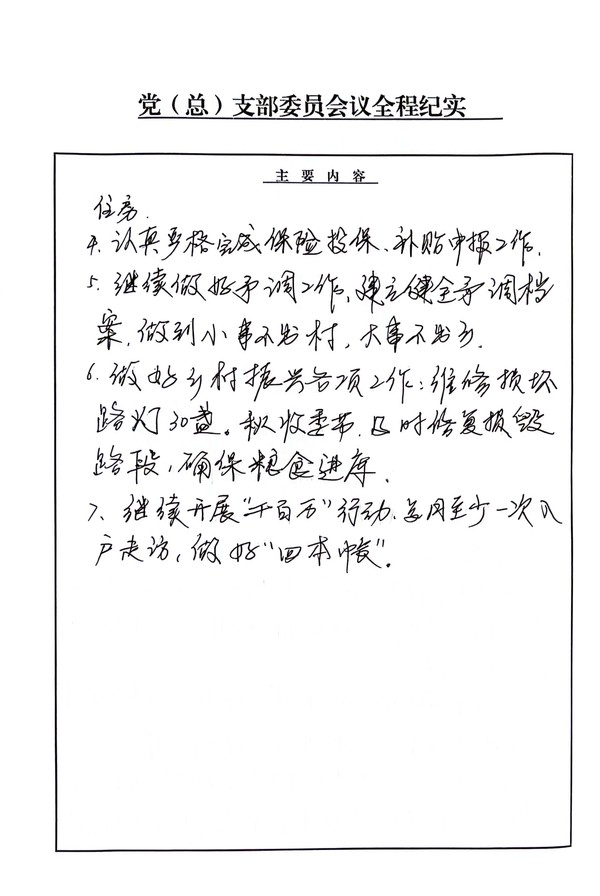 党（总）支部委员会议全程纪实
主要内容
住房.
4. 认真严格完成保险投保、补贴申报工作.
5. 继续做好矛调工作, 建立健全矛调档
案, 做到小事不出村, 大事不出乡.
6. 做好乡村振兴各项工作: 维修损坏
路灯30盏。秋收季节, 及时修复损毁
路段, 确保粮食进库.
7、继续开展"千百万"行动, 每周至少一次入
户走访, 做好"四本帐".